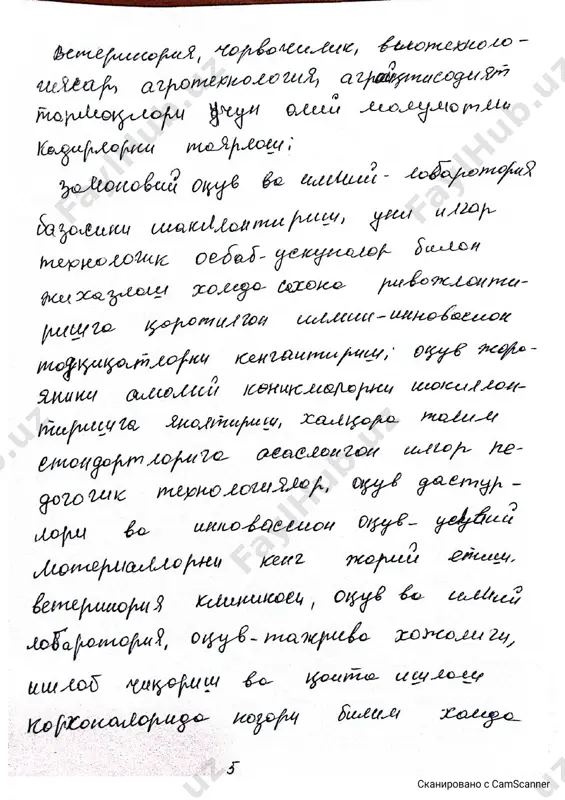 Ветеринория, чорвочилик, биотехноло-
гиялар, агротехнология, агроиқтисодиёт
тармоқлари учун олий малумотли
кадирлорни таярлаш;
Замоновий оқув ва илмий- лоборатория
базосини шакллонтириш, уни илгор
технологик осбоб-ускуналор билан
жихазлаш хамда сохана ривожлонти-
ришга қаротилгон илмий-инновасион
тадқиқатлорни кенгаитириш; оқув жоро-
янини амалий коникмалорни шакиллон-
тиришга яналтириш, халқоро талим
стондортлорига асаслонгон илгор пе-
догогик технологиялор, оқув дастур-
лори ва инновассион оқув-услубий
мотериаллорни кенг жорий етиш.
ветеринория клиникоси, оқув ва илмий
лоборатория, оқув-тажриба хожолиги,
ишлоб чиқориш ва қоита ишлаш
корхоналорида нозори билим хамда
5
Сканировано с CamScanner
FayllHub.uz